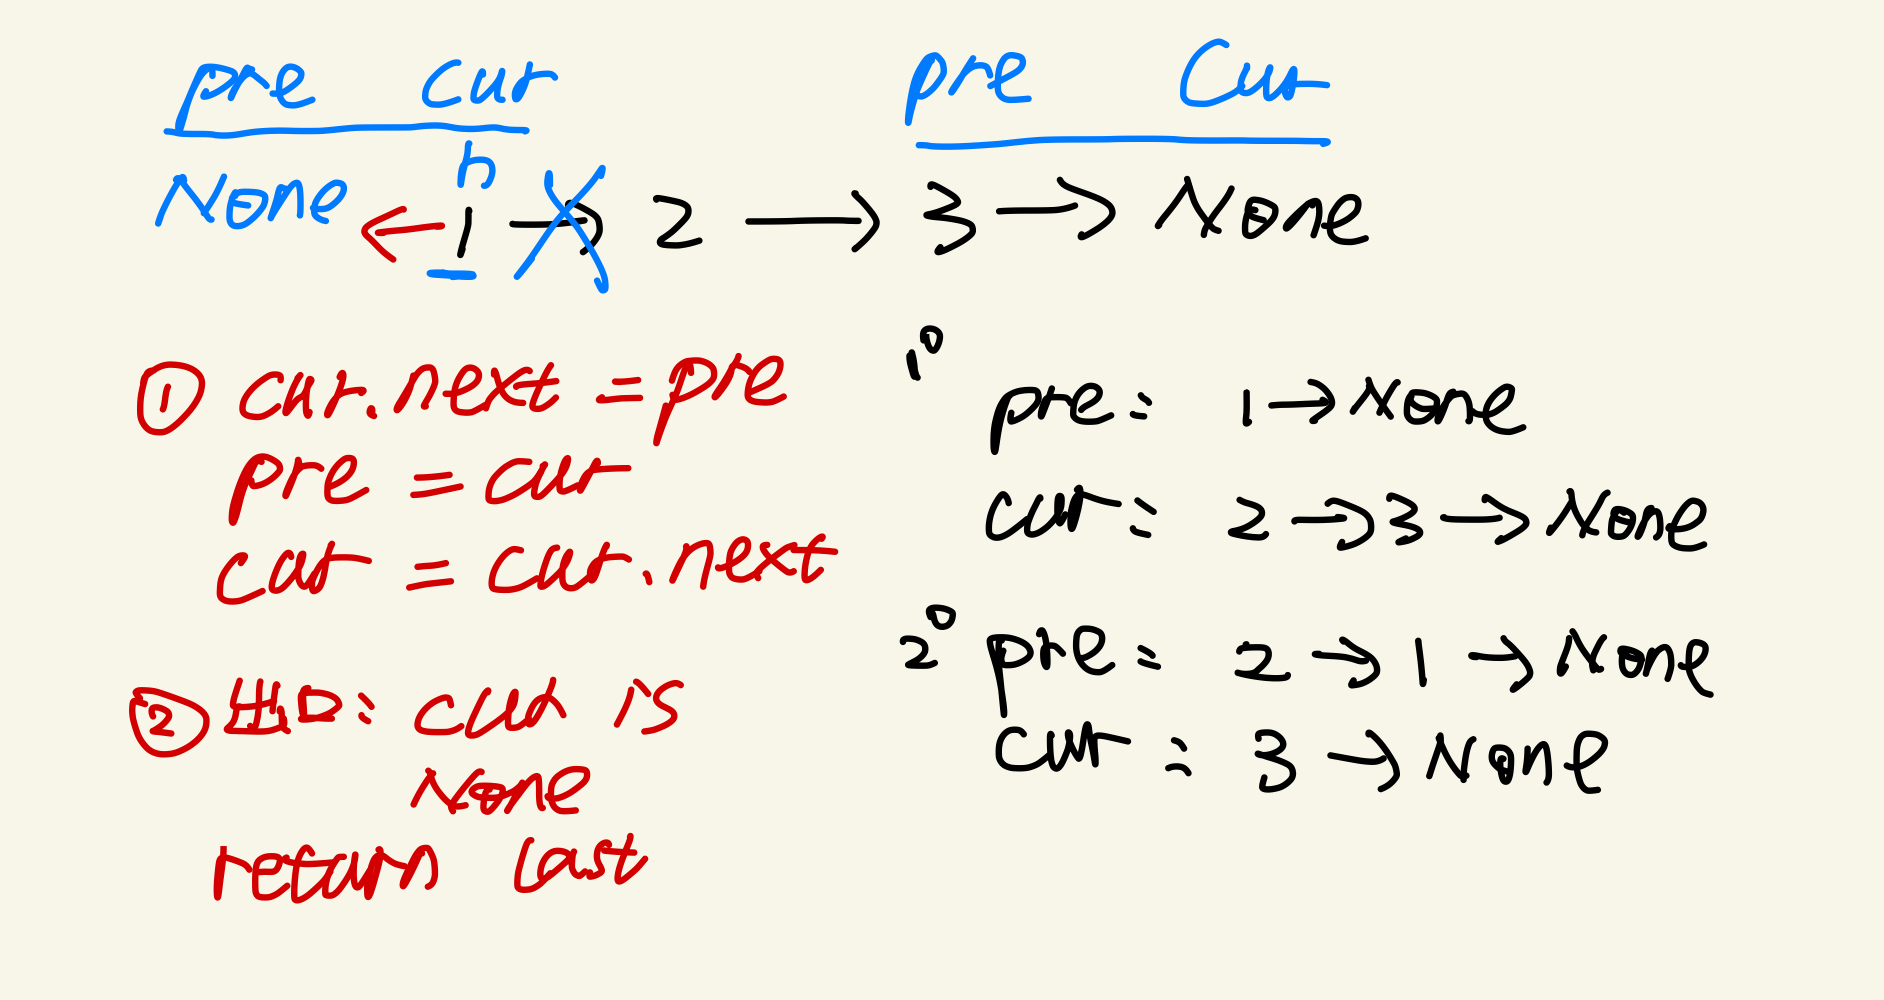 pre cur
pre Cur
h
None ← 1 → 2 → 3 → None
① cur.next = pre
pre = cur
cur = cur.next
② 出口: cur is
None
return last
1°
pre: 1 → None
cur: 2 → 3 → None
2° pre: 2 → 1 → None
cur: 3 → None